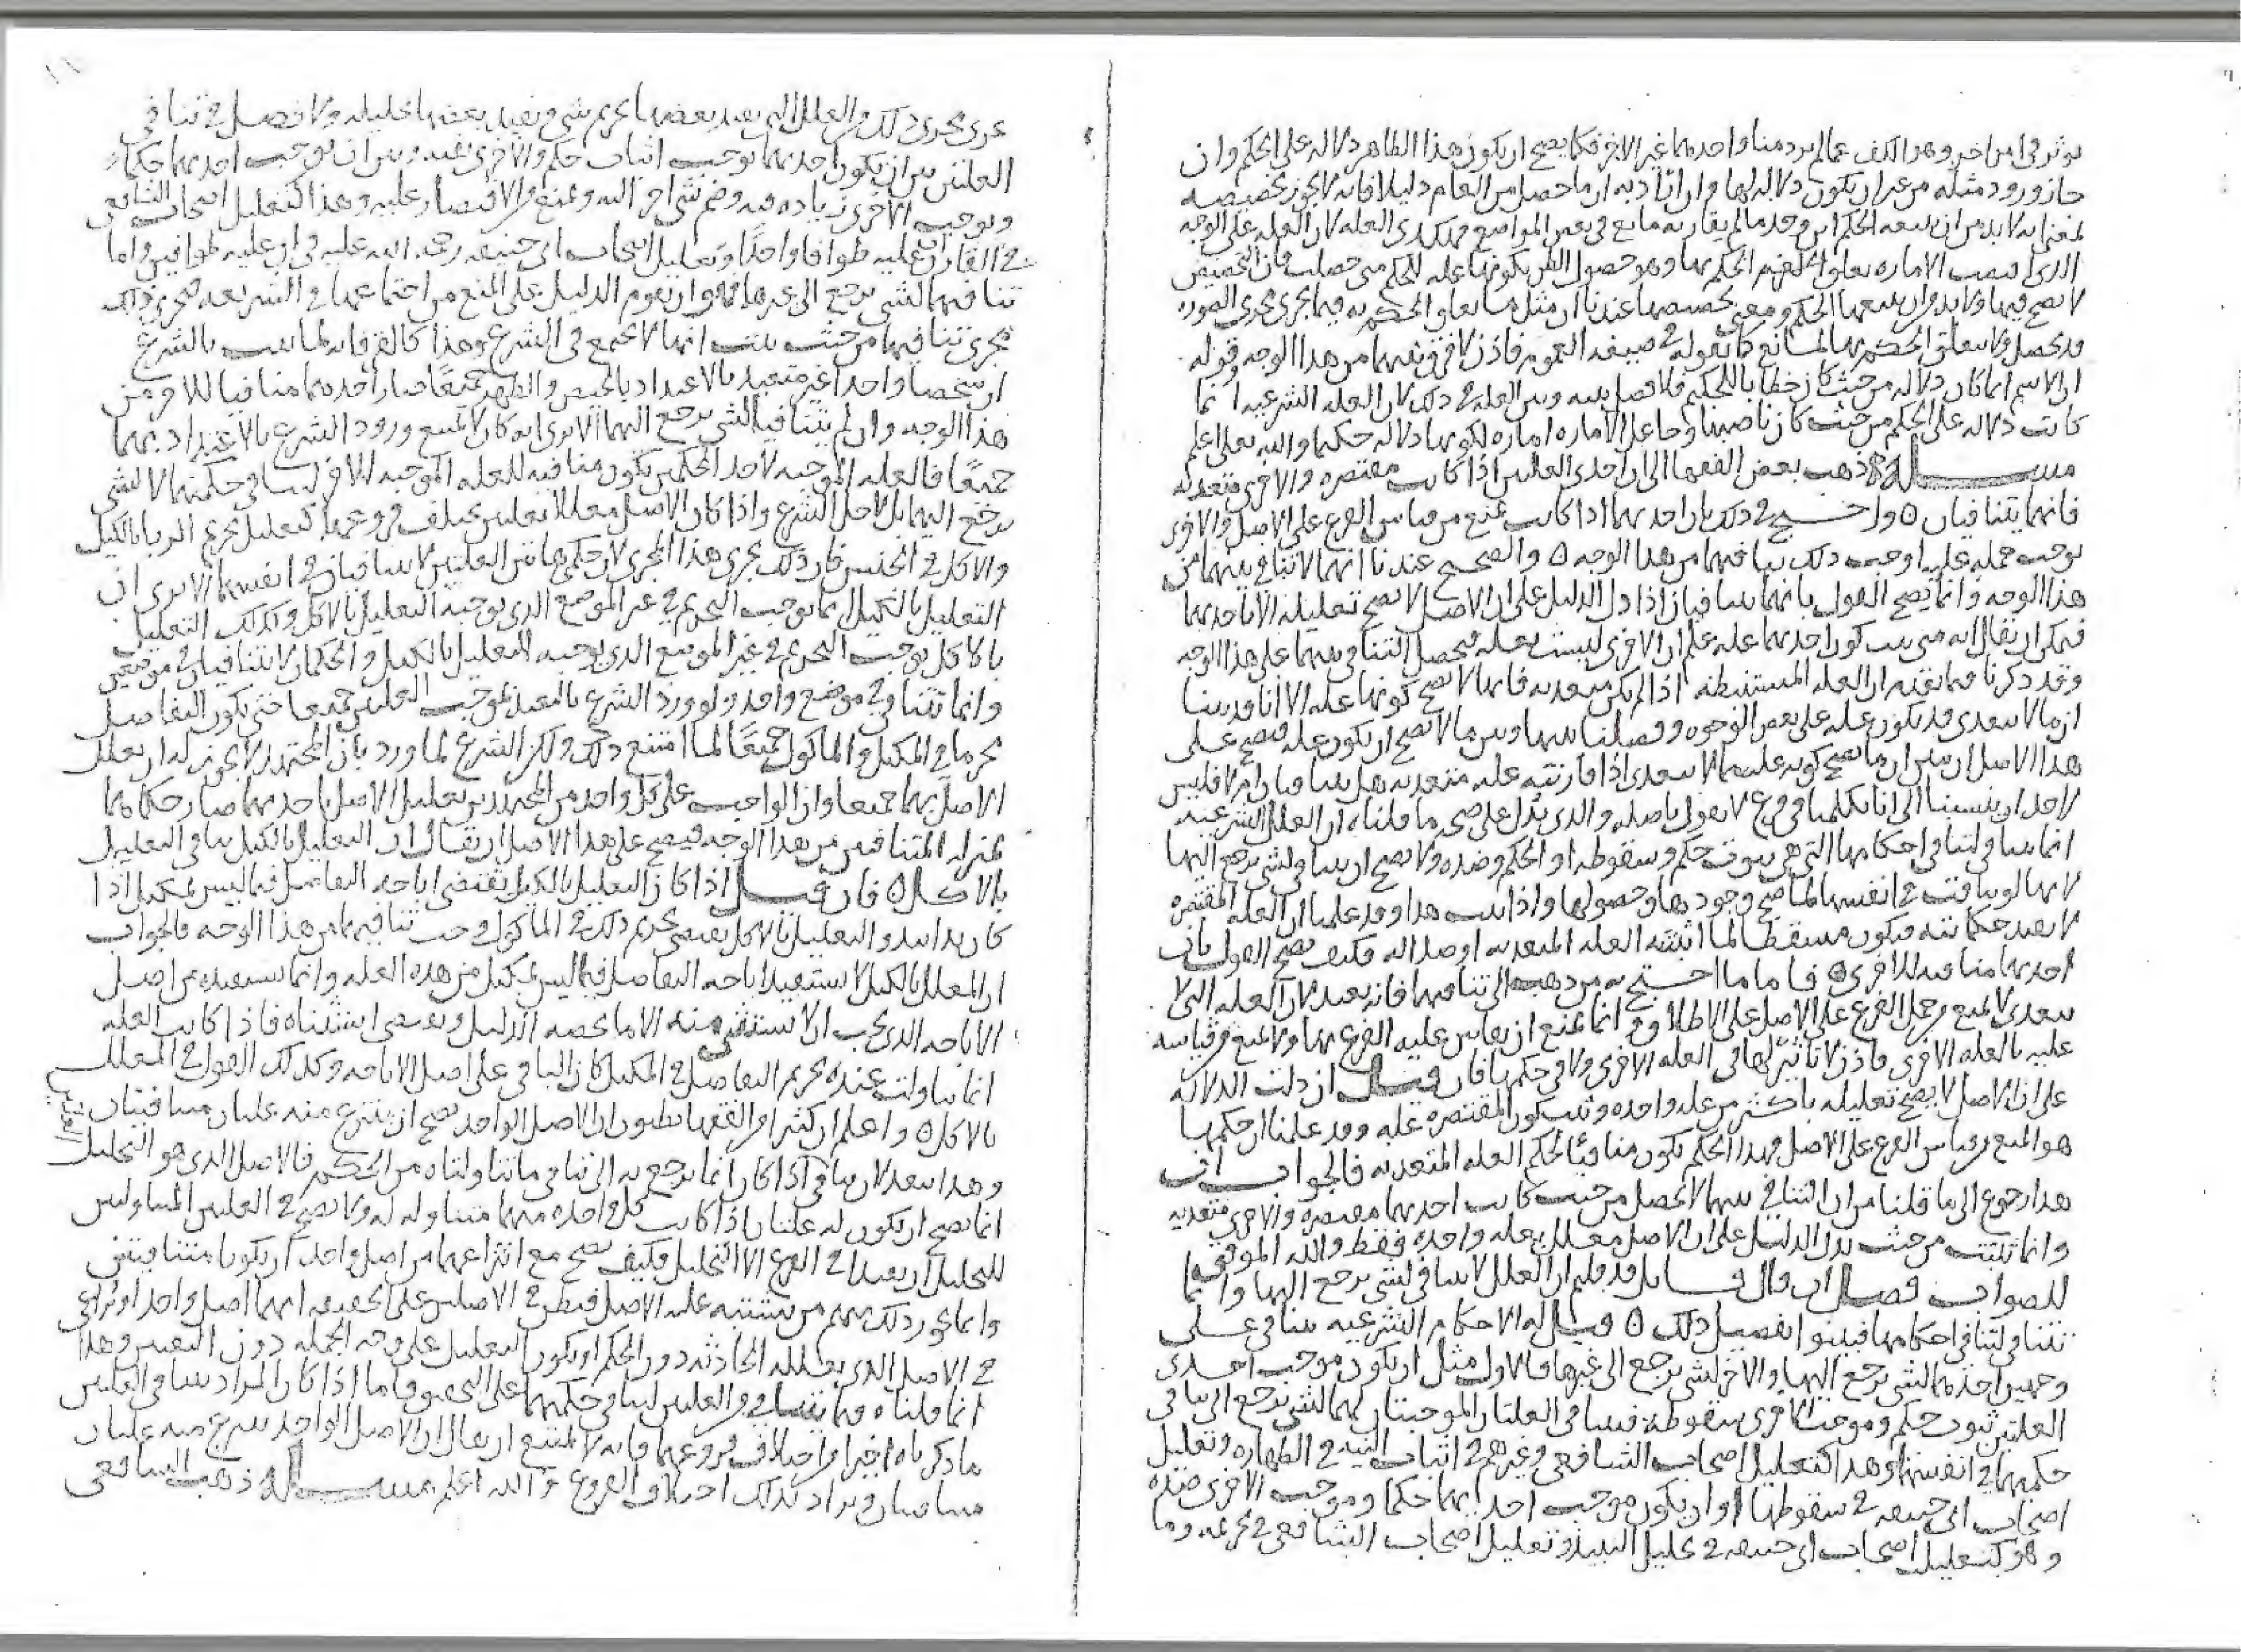 يوثر في امر اخر وهو الكف عما لم يرد منا واحدهما غير الاخر فكما يصح ان يكون هذا الظاهر دلاله على الحكم وان
جاز ورود مثله من غير ان يكون دلاله لها وان اراد به ان ما حصل من العام دليلا فانه لا يجوز تخصيصه
بمعنى انه لا بد من ان يتبعه الحكم اين وجد ما لم يقارنه مانع في بعض المواضع فهكذى العله لان العله على الوجه
الذى نصبت الاماره تعلق الحكم بها وهو حصول الظن بكونها عله للحكم متى حصلت فان التخصيص
لا يصح فيها ولا بد وان يتبعها الحكم ومعنى تخصيصها عندنا ان مثل ما تعلق الحكم به فيما يجرى مجرى الصوره
قد يحصل ولا يتعلق الحكم بها لمانع كما نقوله في صيغه العموم فاذن لا فرق بينهما من هذا الوجه وقوله
ان الاسم انما كان دلاله من حيث كان خطابا للحكيم فلا فصل بينه وبين العله في ذلك لان العله الشرعيه انما
كانت دلاله على الحكم من حيث كان ناصبها وجاعل الاماره اماره لكونها دلاله حكيما والله تعلى اعلم
مسـله ذهب بعض الفقها الى ان احدى العلتين اذا كانت مقتصره والاخرى متعديه
فانهما يتنافيان ٥ واحتـج في ذلك بان احديهما اذا كانت تمنع من قياس الفرع على الاصل والاخرى
توجب حمله عليه اوجب ذلك تنافيهما من هذا الوجه ٥ والصحيح عندنا انهما لا تنافي بينهما من
هذا الوجه وانما يصح القول بانهما يتنافيان اذا دل الدليل على ان الاصل لا يصح تعليله الا باحديهما
فيمكن ان يقال انه متى ثبت كون احديهما عله علم ان الاخرى ليست بعله فيحصل التنافي بينهما على هذا الوجه
وقد ذكرنا فيما تقدم ان العله المستنبطه اذا لم يكن متعديه فانها لا يصح كونها عله الا انا قد بينا
ان ما لا يتعدى قد يكون عله على بعض الوجوه وفصلنا بينها وبين ما لا يصح ان يكون عله فيصح على
هذا الاصل ان يبين ان ما يصح كونه عله مما لا يتعدى اذا قارنته عله متعديه هل يتنافيان ام لا فليس
لاحد ان ينسبنا الى انا تكلمنا في فرع لا نقول باصله والذي يدل على صحه ما قلناه ان العلل الشرعيه
انما يتنافي لتنافي احكامها التي هي ثبوت حكم وسقوطه او الحكم وضده ولا يصح ان يتنافي لشي يرجع اليها
لانها لو تنافت في انفسها لما صح وجودها وحصولها واذا ثبت هذا وقد علمنا ان العله المقتصره
لا يفيد حكما ثم فيكون مسقطا لما اثبتته العله المتعديه او ضدا له فكيف يصح القول بان
احديهما منافيه للاخرى ٥ فاما ما احتـج به من ذهب الى تنافيهما فانه بعيد لان العله التي لا
يتعدى لا تمنع من حمل الفرع على الاصل على الاطلاق وانما تمنع ان يقاس عليه الفرع بها ولا تمنع من قياسه
عليه بالعله الاخرى فاذن لا تاثير لها في العله الاخرى ولا في حكمها فان قيـل ان دلت الدلاله
على ان الاصل لا يصح تعليله باكثر من عله واحده وثبت كون المقتصره عله وقد علمنا ان حكمها
هو المنع من قياس الفرع على الاصل فهذا الحكم يكون منافيا لحكم العله المتعديه فالجواب ان
هذا رجوع الى ما قلنا من ان التنافي بينهما لا يحصل من حيث كانت احديهما مقتصره والاخرى متعديه
وانما تثبت من حيث يدل الدليل على ان الاصل معلل بعله واحده فقط والله الموفق
للصواب فصـل ان قال قـايل قد قلتم ان العلل لا تتنافي لشي يرجع اليها وانما
تتنافي لتنافي احكامها فبينوا تفصيل ذلك ٥ قيـل له الاحكام الشرعيه يتنافي على
وجهين احدهما لشي يرجع اليها والاخر لشي يرجع الى غيرها فالاول مثل ان يكون موجب احدى
العلتين ثبوت حكم وموجب الاخرى سقوطه فيتنافي العلتان الموجبتان لهما لشي يرجع الى تنافي
حكميهما في انفسهما وهذا كتعليل اصحاب الشافعي وغيرهم في اثبات النيه في الطهاره وتعليل
اصحاب ابي حنيفه في سقوطها او ان يكون موجب احديهما حكما وموجب الاخرى ضده
وهو كتعليل اصحاب ابي حنيفه في تحليل النبيذ وتعليل اصحاب الشافعي في تحريمه وما
جرى مجرى ذلك من العلل التي يفيد بعضها تحريم شي ويفيد بعضها تحليله ولا فصل في تنافي
العلتين بين ان يكون احديهما توجب اثبات حكم والاخرى نفيه وبين ان توجب احديهما حكما
وتوجب الاخرى زياده فيه وضم شي اخر اليه وتمنع من الاقتصار عليه وهذا كتعليل اصحاب الشافعي
في القارن ان عليه طوافا واحدا وتعليل اصحاب ابي حنيفه رحمه الله عليه في ان عليه طوافين واما
تنافيهما لشي يرجع الى غيرها فهو ان يقوم الدليل على المنع من اجتماعهما في الشريعه فيجرى ذلك
مجرى تنافيهما من حيث ثبت انهما لا تجتمع في الشرع وهذا كالقرء فانه لما ثبت بالشرع
ان شخصا واحدا غير متعبد بالاعتداد بالحيض والطهر جميعا صار احدهما منافيا للاخر من
هذا الوجه وان لم يتنافيا لشي يرجع اليهما الا ترى انه كان لا يمتنع ورود الشرع بالاعتداد بهما
جميعا فالعله الموجبه لاحد الحكمين يكون منافيه للعله الموجبه للاخر لتنافي حكمتهما لا لشي
يرجع اليهما بل لاجل الشرع واذا كان الاصل معللا بعلتين يختلف فروعهما كتعليل تحريم الربا بالكيل
والاكل في الجنس فان ذلك يجرى هذا المجرى لان حكمي هاتين العلتين لا يتنافيان في انفسهما الا ترى ان
التعليل بالكيل انما يوجب التحريم في غير الموضع الذي يوجبه التعليل بالاكل وكذلك التعليل
بالاكل يوجب التحريم في غير الموضع الذي يوجبه التعليل بالكيل والحكمان لا يتنافيان في موضعين
وانما تتنافي في موضع واحد ولو ورد الشرع بالتعبد بموجب العلتين جميعا حتى يكون التفاضل
محرما في المكيل والماكول جميعا لما امتنع ذلك ولكن الشرع لما ورد بان المجتهد لا يجوز له ان يعلل
الاصل بهما جميعا وان الواجب على كل واحد من المجتهدين تعليل الاصل باحديهما صار حكماهما
بمنزله المتنافيين من هذا الوجه فيصح على هذا الاصل ان يقال ان التعليل بالكيل ينافي التعليل
بالاكل ٥ فان قيـل اذا كان التعليل بالكيل يقتضي اباحه التفاضل فيما ليس بمكيل اذا
كان يدا بيد والتعليل بالاكل يقتضي تحريم ذلك في الماكول وجب تنافيهما من هذا الوجه فالجواب
ان المعلل بالكيل لا يستفيد اباحه التفاضل فيما ليس بمكيل من هذه العله وانما يستفيده من اصل
الاباحه الذي يجب ان لا يستثنى منه الا ما يخصه الدليل ويقتضي استثناه فاذا كانت العله
انما تناولت عنده تحريم التفاضل في المكيل كان الباقي على اصل الاباحه وكذلك القول في المعلل
بالاكل ٥ واعلم ان كثيرا من الفقها يظنون ان الاصل الواحد يصح ان ينتزع منه علتان متنافيتان
وهذا بعيد لان تنافي اذا كان انما يرجع به الى تنافي ما تناولتاه من الحكم فالاصل الذي هو التحليل
انما يصح ان يكون له علتان اذا كانت كل واحده منهما متناوله له ولا يصح في العلتين المتناولتين
للتحليل ان يفيدا في الفرع الا التحليل فكيف يصح مع انتزاعهما من اصل واحد ان يكونا متنافيتين
وانما يجوز ذلك منهم من يشتبه عليه الاصل فيظن في الاصلين على الحقيقه انهما اصل واحد او يراعي
في الاصل الذي يعلله الحادثه دون الحكم او يكون التعليل على وجه الجمله دون التعيين وهذا
انما قلناه فيما يتنافى من العلتين لتنافي حكميهما على التحقيق فاما اذا كان المراد بتنافي العلتين
ما ذكرناه اخيرا من اختلاف فروعهما فانه لا يمتنع ان يقال ان الاصل الواحد ينتزع منه علتان
متنافيتان ويراد بذلك اختلاف الفروع والله اعلم مسـله ذهب الشافعي